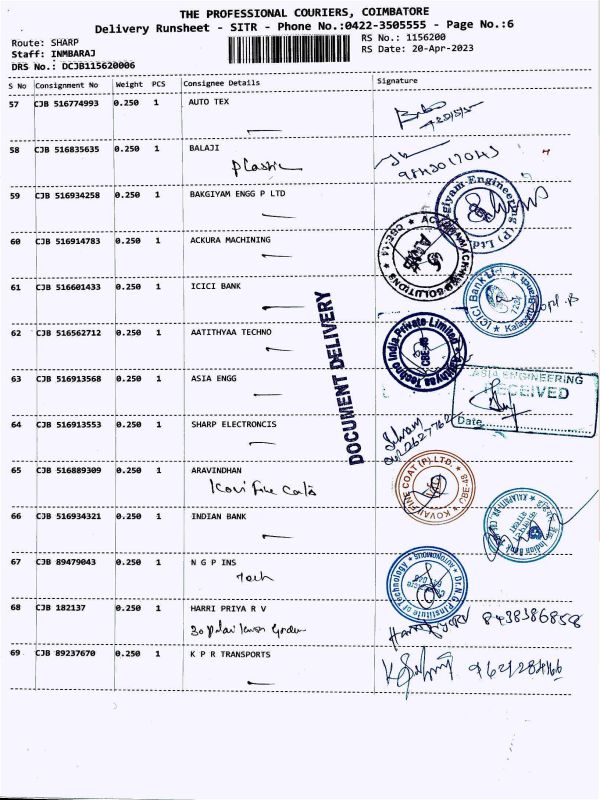 THE PROFESSIONAL COURIERS, COIMBATORE
Delivery Runsheet - SITR - Phone No.:0422-3505555 - Page No.:6
Route: SHARP
RS No.: 1156200
Staff: INMBARAJ
RS Date: 20-Apr-2023
DRS No.: DCJB115620006
S No Consignment No Weight PCS Consignee Details Signature
57 CJB 516774993 0.250 1 AUTO TEX
58 CJB 516835635 0.250 1 BALAJI
Plastic
59 CJB 516934258 0.250 1 BAKGIYAM ENGG P LTD
60 CJB 516914783 0.250 1 ACKURA MACHINING
61 CJB 516601433 0.250 1 ICICI BANK
62 CJB 516562712 0.250 1 AATITHYAA TECHNO
63 CJB 516913568 0.250 1 ASIA ENGG
ASIA ENGINEERING
RECEIVED
Date
DOCUMENT DELIVERY
64 CJB 516913553 0.250 1 SHARP ELECTRONCIS
65 CJB 516889309 0.250 1 ARAVINDHAN
Kovi Fine Coats
KOVAI FINE COAT (P) LTD.
66 CJB 516934321 0.250 1 INDIAN BANK
67 CJB 89479043 0.250 1 N G P INS
Tech
Dr.N.G.P.Institute of Technology
68 CJB 182137 0.250 1 HARRI PRIYA R V
8438386858
69 CJB 89237670 0.250 1 K P R TRANSPORTS